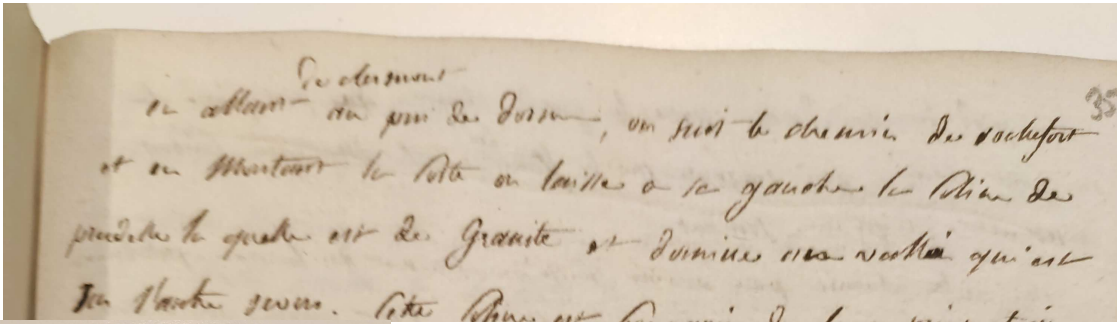 35
de clermont
en allant au puy de dome, on suit le chemin de rochefort
et en montant la Côte on laisse a sa gauche la Coline de
prudelle la quelle est de Granite et domine une vallée qui est
Cette Coline est